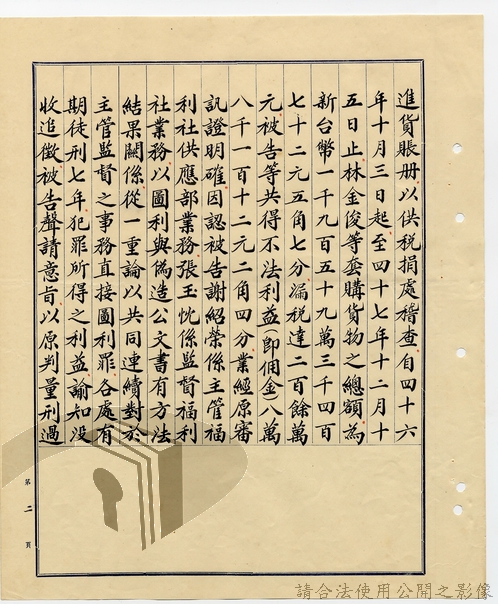 進貨賬册以供稅捐處稽查自四十六
年十月三日起至四十七年十二月十
五日止林金俊等套購貨物之總額為
新台幣一千九百五十九萬三千四百
七十二元五角七分漏稅達二百餘萬
元被告等共得不法利益(即佣金)八萬
八千一百十二元二角四分業經原審
訊證明確因認被告謝紹榮係主管福
利社供應部業務張玉忱係監督福利
社業務以圖利與偽造公文書有方法
結果關係從一重論以共同連續對於
主管監督之事務直接圖利罪各處有
期徒刑七年犯罪所得之利益諭知没
收追徵被告聲請意旨以原判量刑過
第二頁
請合法使用公開之影像